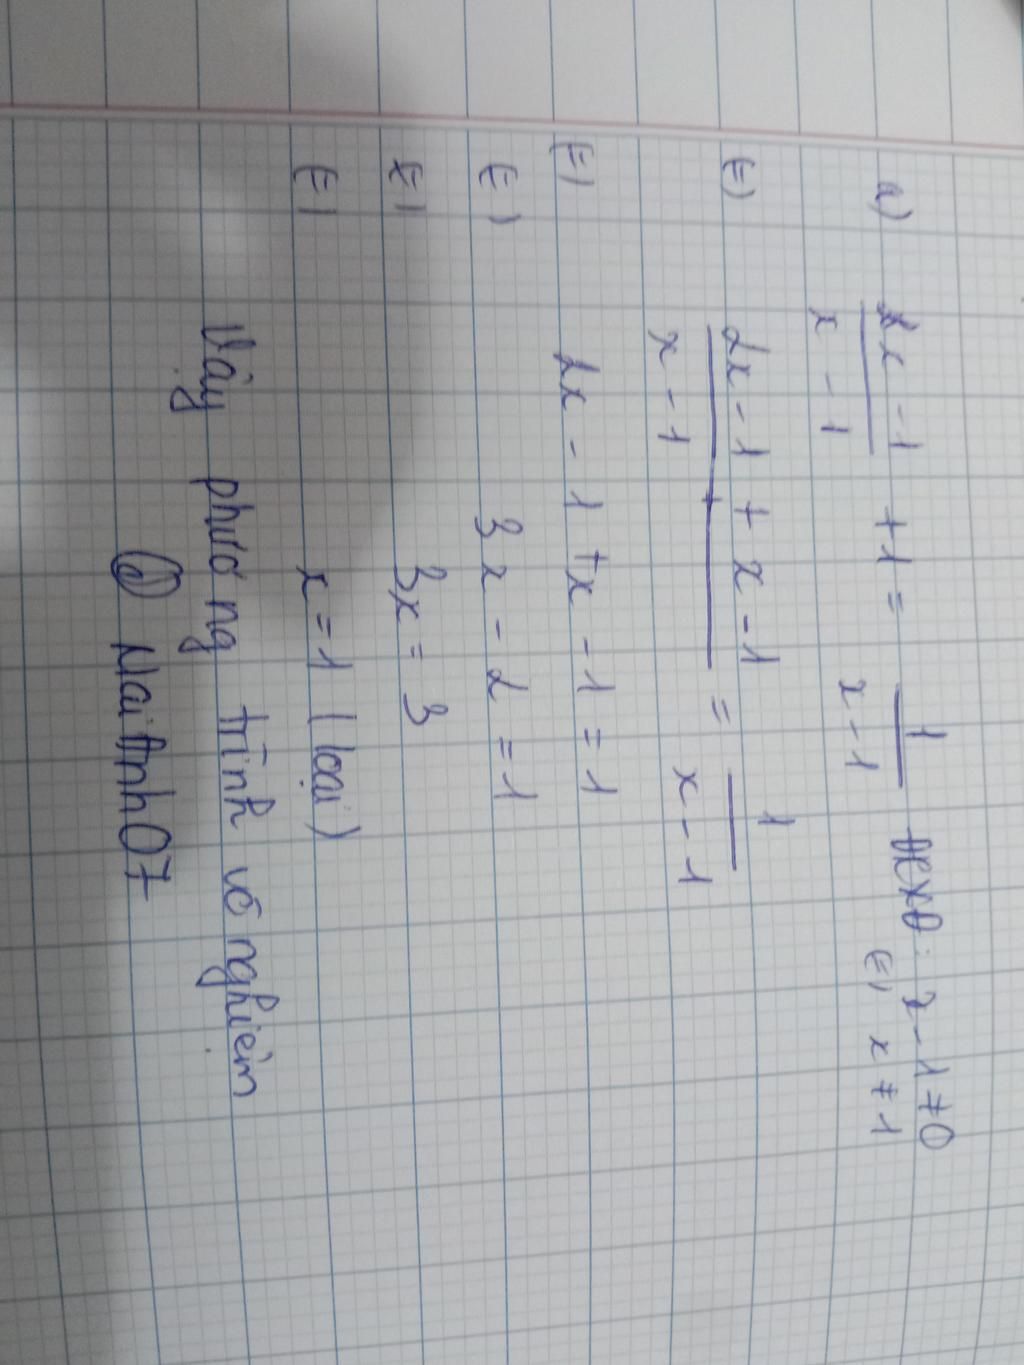 a) 2x - 1 / x - 1 + 1 = 1 / x - 1 ĐKXĐ: x - 1 ≠ 0
⇔ x ≠ 1
⇔ 2x - 1 + x - 1 / x - 1 = 1 / x - 1
⇔ 2x - 1 + x - 1 = 1
⇔ 3x - 2 = 1
⇔ 3x = 3
⇔ x = 1 (loại)
Vậy phương trình vô nghiệm
@ MaiAnh07